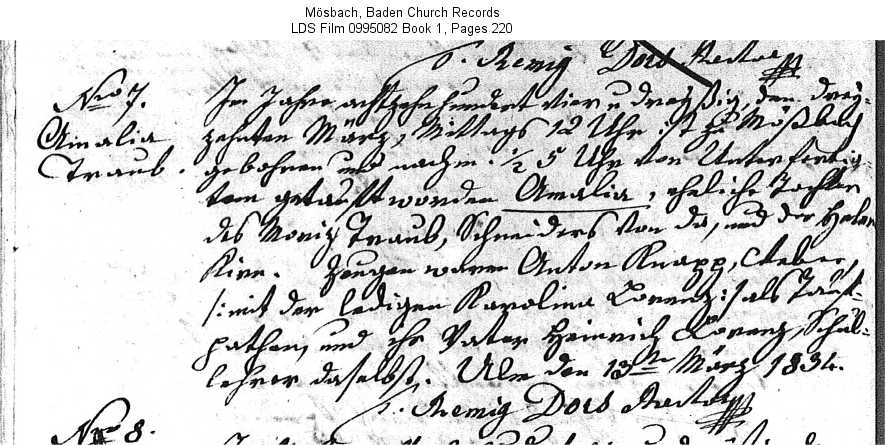 Mösbach, Baden Church Records
LDS Film 0995082 Book 1, Pages 220
Remig Dors Rector
Nro 7.
Amalia
Traub.
Im Jahre achtzehnhundert vier u dreyßig, den drey-
zehnten März, Mittags 12 Uhr ist zu Mösbach
gebohren und nachm. ½ 5 Uhr von Unterfertig-
tem getauft worden Amalia, eheliche Tochter
des Moriz Traub, Schneiders von da, und der Helen
Kirn. Zeugen waren Anton Knapp, Weber,
/:mit der ledigen Karolina Lorenz:/ als Tauf-
pathen, und ihr Vater Heinrich Lorenz, Schul-
lehrer daselbst. Ulm den 13ten März 1834.
Remig Dors Rector
Nro 8.